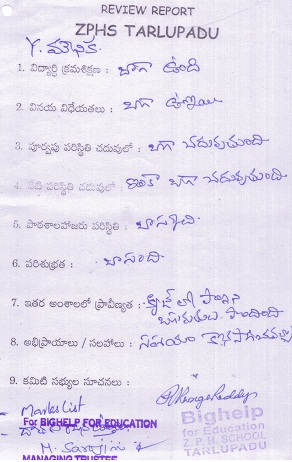 REVIEW REPORT
ZPHS TARLUPADU
Y. మౌనిక
1. విద్యార్థి క్రమశిక్షణ : బాగా ఉంది
2. వినయ విధేయతలు : బాగా ఉన్నాయి
3. పూర్వపు పరిస్థితి చదువులో : బాగా చదువుతుంది
4. నేటి పరిస్థితి చదువులో : ఇంకా బాగా చదువుతుంది
5. పాఠశాలహాజరు పరిస్థితి :
6. పరిశుభ్రత :
7. ఇతర అంశాలలో ప్రావీణ్యత :
బహుమతులు పొందింది
8. అభిప్రాయాలు / సలహాలు : సహాయం
9. కమిటి సభ్యుల సూచనలు :
Marks List
For BIGHELP FOR EDUCATION
MANAGING TRUSTEE
Bighelp
for Education
Z.P.H. SCHOOL
TARLUPADU